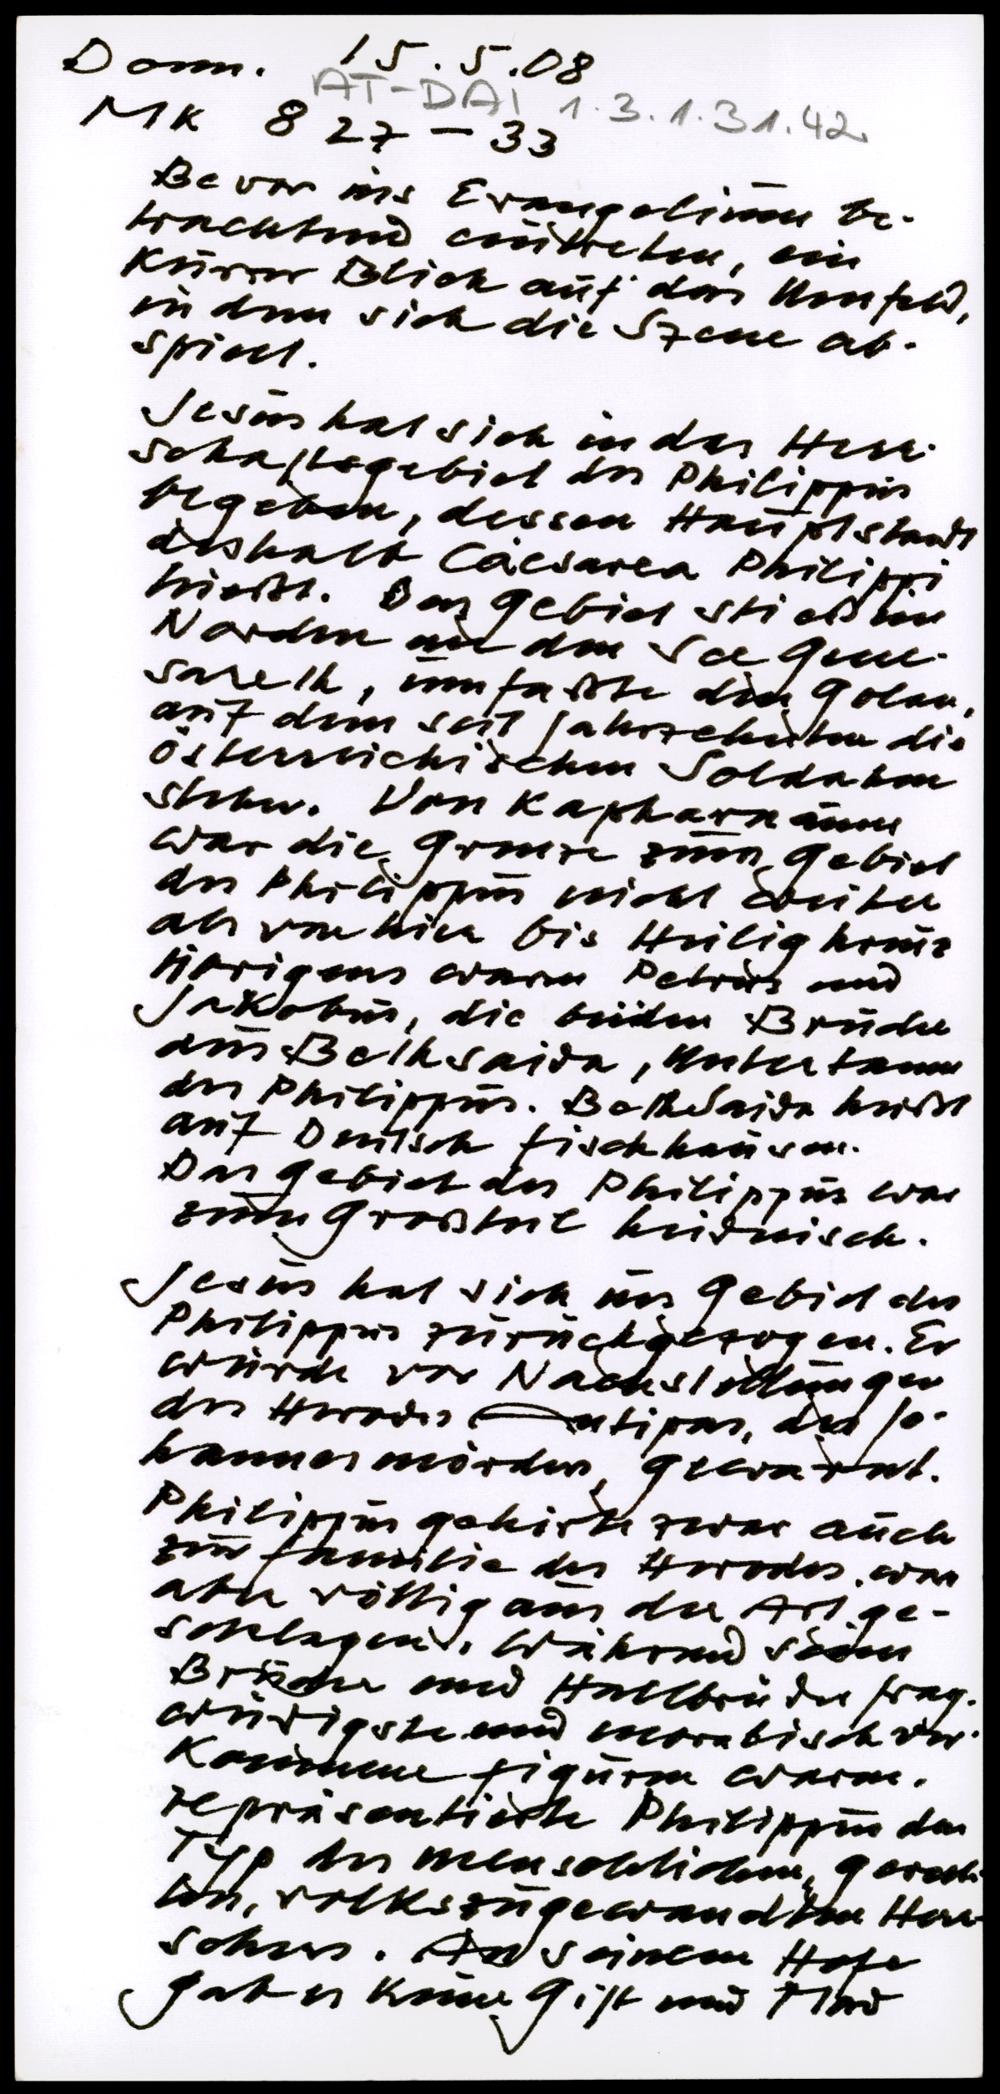 Donn. 15.5.08
AT-DAI 1.3.1.31.42
MK 8 27-33
Bevor ins Evangelium be-
trachtend eintreten, ein
kurzer Blick auf das Umfeld,
in dem sich die Szene ab-
spielt.
Jesus hat sich in das Herr-
schaftsgebiet des Philippus
begeben, dessen Hauptstadt
deshalb Cäesarea Philippi
hieß. Das Gebiet stieß im
Norden an den See Gene-
sareth, umfaßte den Golan,
auf dem seit Jahrzehnten die
österreichischen Soldaten
stehen. Von Kapharnaum
war die Grenze zum Gebiet
des Philippus nicht weiter
als von hier bis Heiligkreuz
Übrigens waren Petrus und
Jakobus, die beiden Brüder
aus Bethsaida, Untertanen
des Philippus. Bethsaida heißt
auf Deutsch Fischhausen.
Das Gebiet des Philippus war
zum Großteil heidnisch.
Jesus hat sich ins Gebiet des
Philippus zurückgezogen. Er
wurde vor Nachstellungen
des Herodes Antipas, des Jo-
hannesmörders, gewarnt.
Philippus gehörte zwar auch
zur Familie des Herodes, war
aber völlig aus der Art ge-
schlagen. Während seine
Brüder und Halbbrüder frag-
würdigste und moralisch ver-
kommene Figuren waren,
repräsentierte Philippus den
Typ des menschlichen, gerech-
ten, volkszugewandten Herr-
schers. An seinem Hofe
gab es keine Gift und Mord